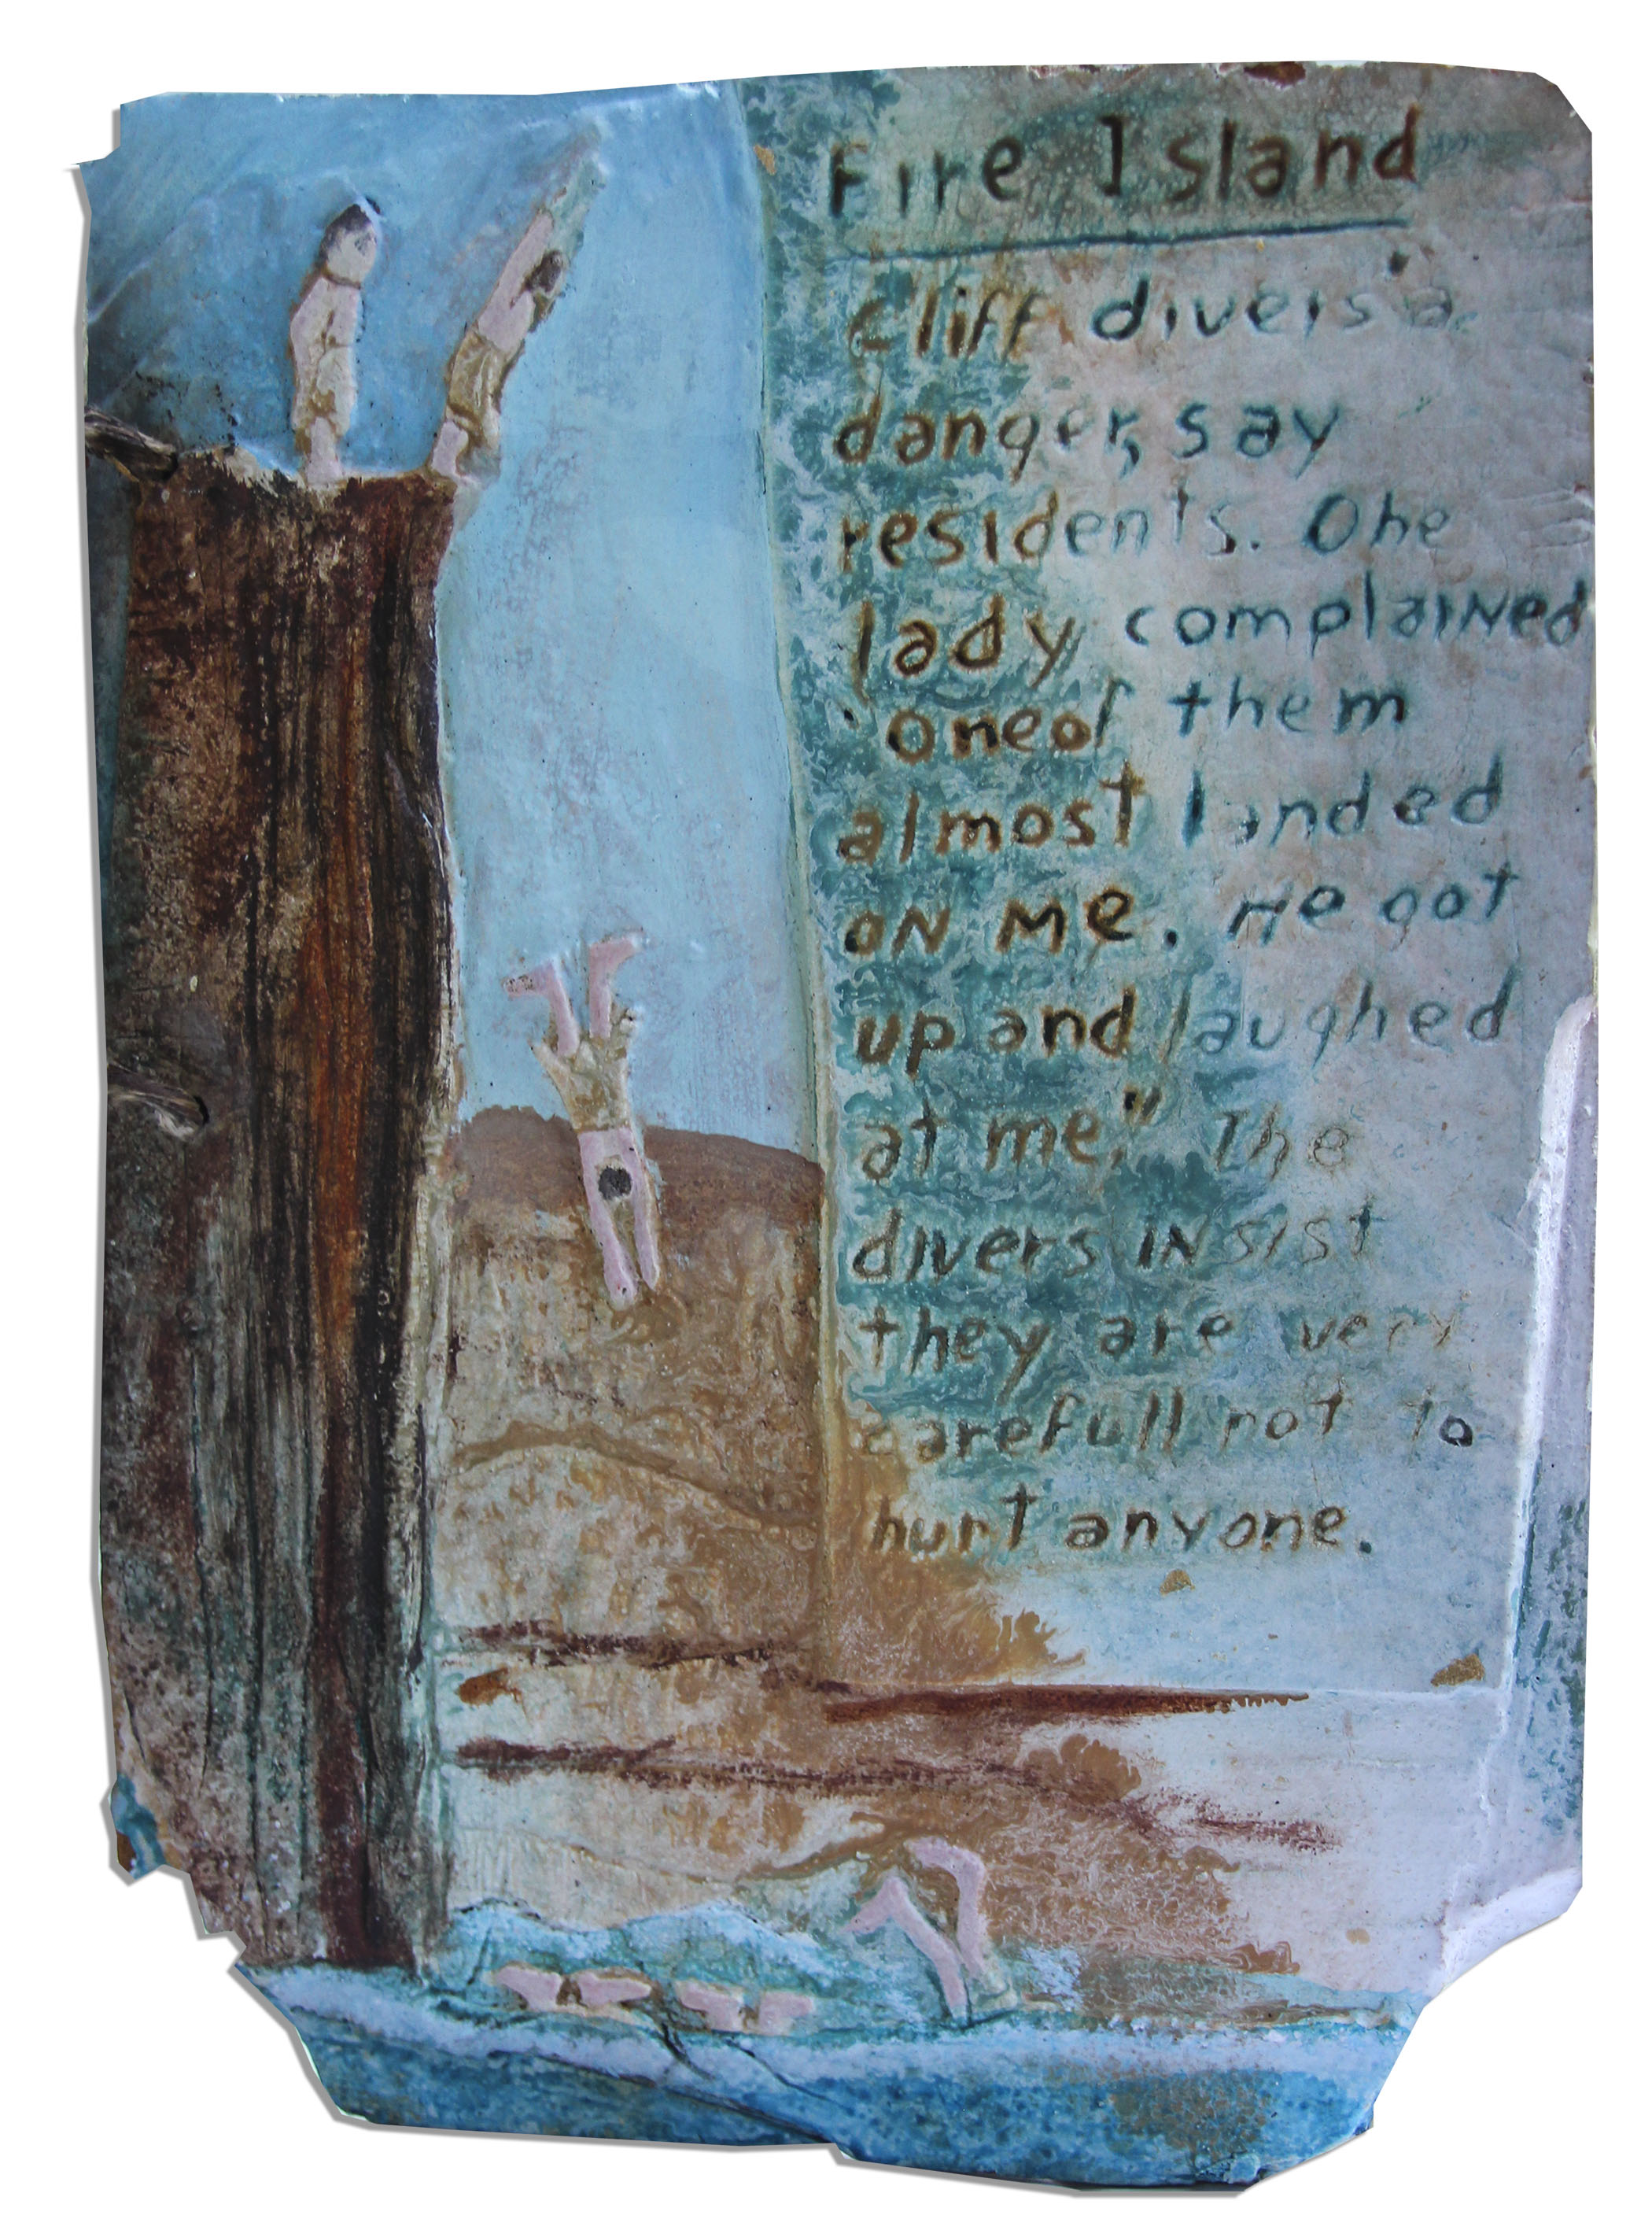 Fire Island
Cliff divers a
danger, say
residents. One
lady complained
"One of them
almost landed
on me. He got
up and laughed
at me." The
divers insist
they are very
carefull not to
hurt anyone.